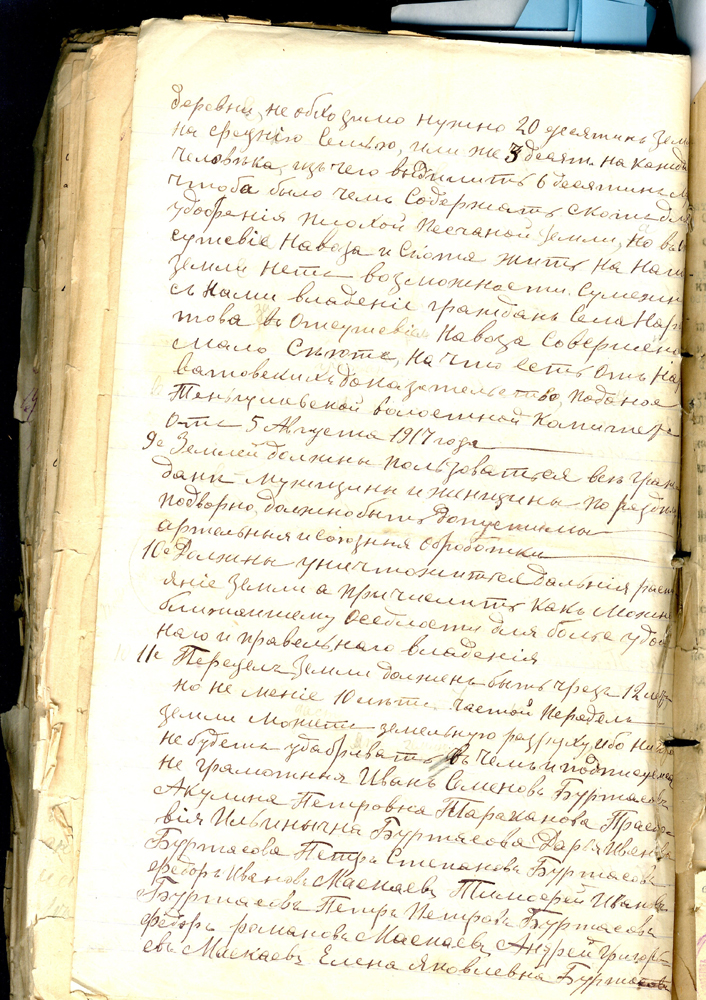 деревни, необходимо нужно 20 десятинъ Земли
на Среднію Семью, или же 3 десят на Кажда
Человѣка, изъ чего выделитъ 6 десятинъ
чтоба было чемъ Содержатъ Скотъ для
удобренія плохой Песчаной Земли, но въ
сутевіе Навоза и Скота житъ на наш
земли нетъ возможности. Сумежн
съ нами владеніе гражданъ Села Нар
това въ отсутевіи Навоза Совершено
мало Сеютъ, на что естъ отъ На
ватовскихъ доказателство, поданое
Теньгушевской волостной Комитетъ
отъ 5 Августа 1917 года
9е Землей должны ползоватся всѣ граж
дани мужщины и женщины по разд
подворно, должно быть допустимы
артельныя и союзныя обработки
10е Должны уничтожится дальнія раст
яніе земли а причислитъ какъ можн
ближайшему особности для более удоб
наго и правельнаго владенія
11е Переделъ Земли долженъ быть чрезъ 12 летъ
но не меніе 10 летъ. Частой Переделъ
земли можетъ земельную разруху, ибо никто
не будетъ удабриватъ, въ чемъ и подписуемся
не грамотныя Иванъ Семеновъ Буртасовъ
Акулина Петровна Тараканова Праско
вія Ильинычна Буртасова Дарья Иванова
Буртасова Петръ Степановъ Буртасовъ
Федоръ Ивановъ Маскаевъ Тимофей Ивановъ
Буртасовъ Петръ Петровъ Буртасовъ
Федоръ романовъ Маскаевъ Андрей Григорь
евъ Маскаевъ Елена Яковлевна Буртасова